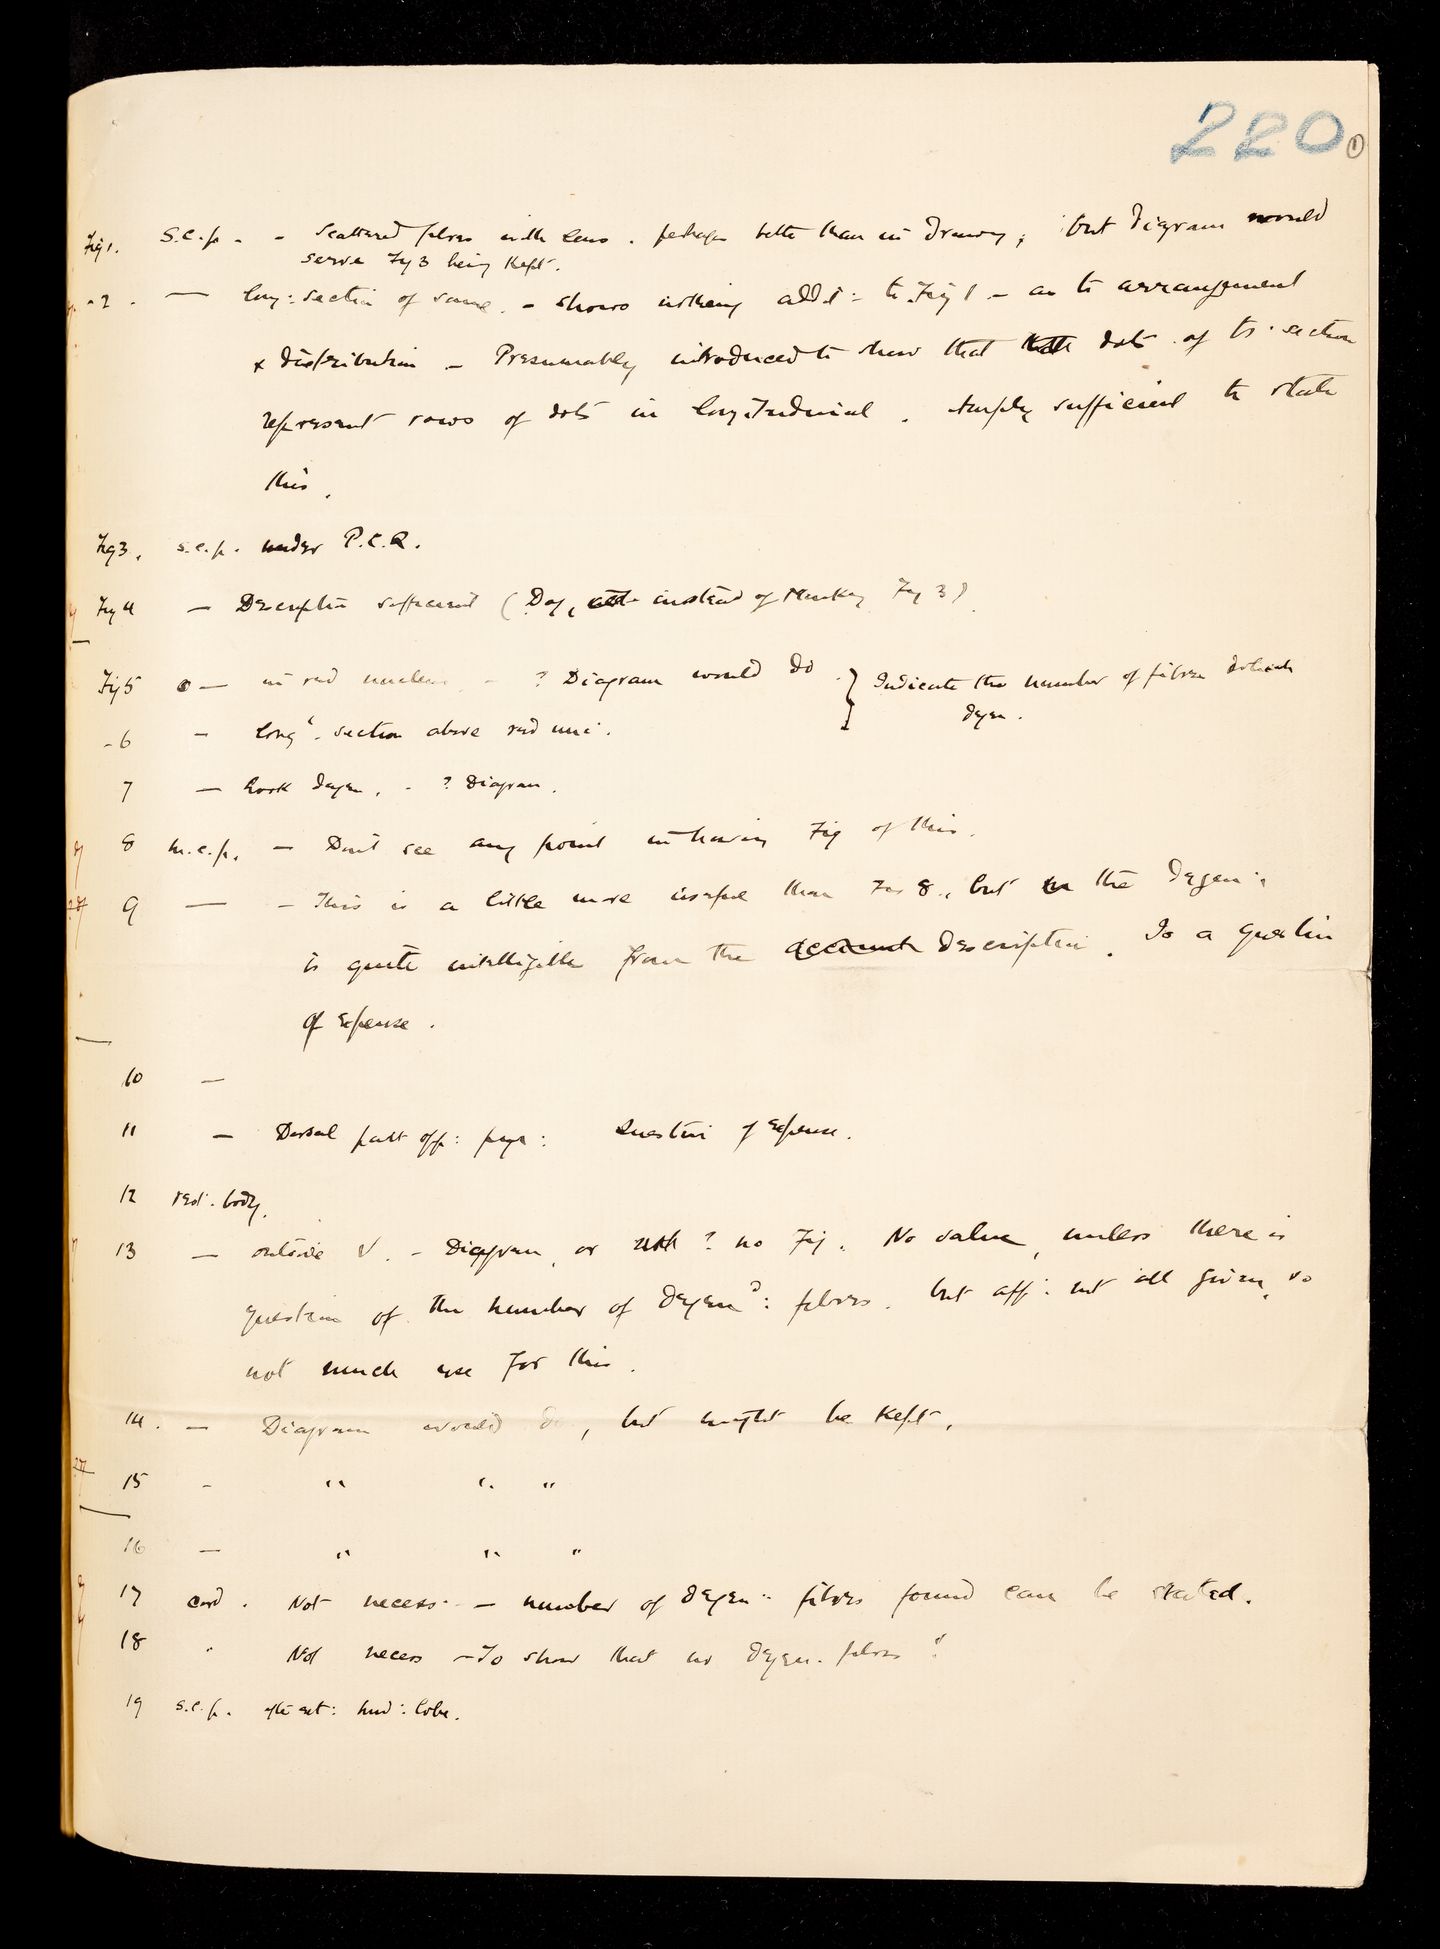 220 ①
Fig 1. S.C.p. - - Scattered fibres with lens. perhaps better than in drawing; but diagram would
serve Fig 3 being kept.
- 2. — long: section of same. - shows nothing addl: to Fig 1 - as to arrangement
& distribution - Presumably introduced to show that dots of tr. section
represent rows of dots in longitudinal. Amply sufficient to state
this.
Fig 3. s.c.p. under P.C.Q.
Fig 4 — Description sufficient (Dog, instead of Monkey Fig 3)
Fig 5 — in red nucleus - ? Diagram would do. } Indicate the number of fibres which
degen.
- 6 - longl. section above red nuc:
7 — degen. - ? Diagram.
8 m.c.p. — Don't see any point in having Fig of this.
9 — - This is a little more useful than Fig 8, but the degen:
is quite intelligible from the account description. Is a question
of expense.
10 —
11 — Dorsal part opp: pyr: Question of expense.
12 rest. body.
13 — outside V. - Diagram, or ? no Fig. No value, unless there is
question of the number of degend: fibres. but app: not all given, so
not much use for this.
14. — Diagram would do, but might be kept.
15 - " " "
16 — " " "
17 cord. Not necess: - number of degen: fibres found can be stated.
18 " Not necess - To show that no degen. fibres?
19 s.c.p. after ext: lobe.